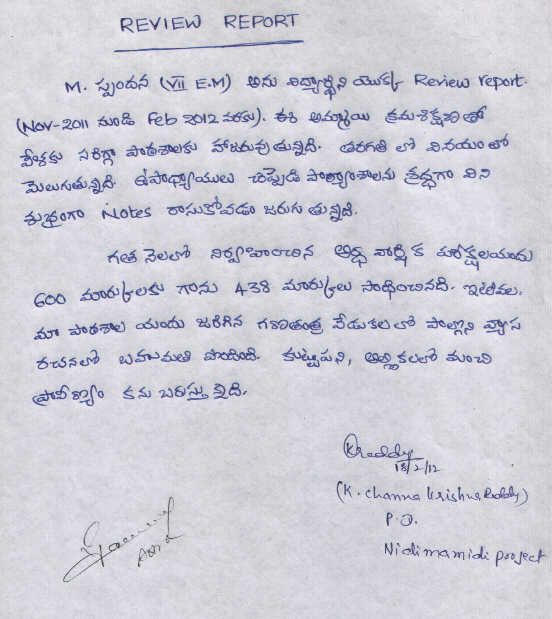 REVIEW REPORT
M. స్పందన (VII E.M) అను విద్యార్థిని యొక్క Review report.
(Nov-2011 నుండి Feb 2012 వరకు). ఈ అమ్మాయి క్రమశిక్షణతో
వేళకు సరిగ్గా పాఠశాలకు హాజరువుతున్నది. తరగతి లో వినయంతో
మెలుగుతున్నది. ఉపాధ్యాయులు చెప్పెడి పాఠ్యాంశాలను శ్రద్ధగా విని
శుభ్రంగా Notes రాసుకోవడం జరుగు తున్నది.
గత నెలలో నిర్వహించిన అర్ధ వార్షిక పరీక్షలయందు
600 మార్కులకు గాను 438 మార్కులు సాధించినది. ఇటీవల,
మా పాఠశాల యందు జరిగిన గణతంత్ర వేడుకలలో పాల్గొని వ్యాస
రచనలో బహుమతి పొందింది. కుట్టుపని, అల్లికలలో మంచి
ప్రావీణ్యం కను బరుస్తు న్నది.
KReddy
18/2/12
(K. Channa Krishna Reddy)
P.O.
Nidimamidi project